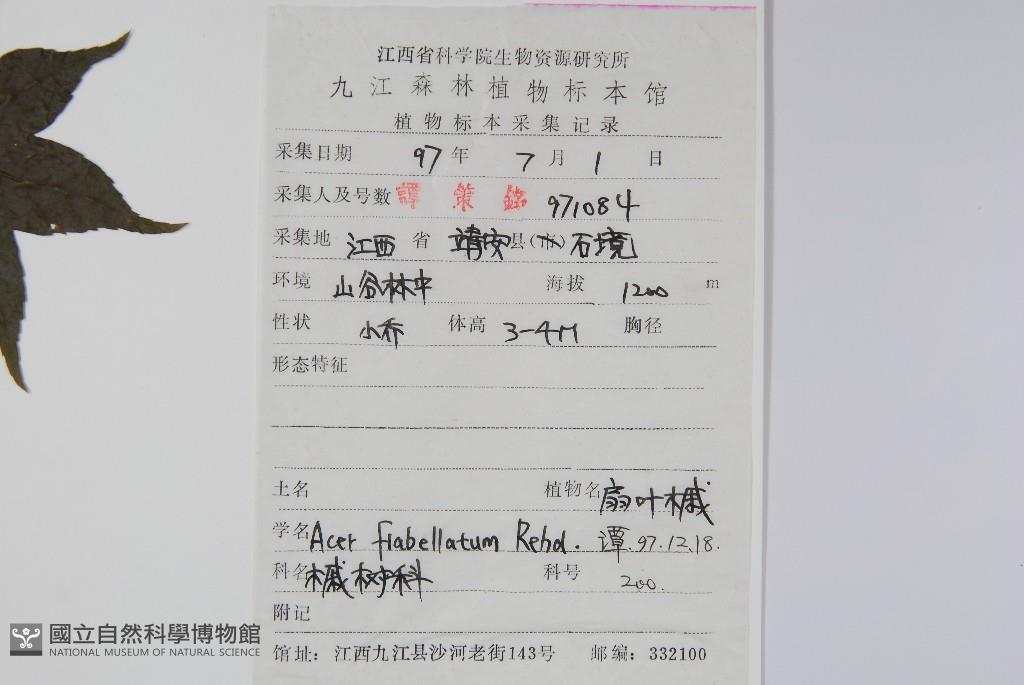 江西省科学院生物资源研究所
九江森林植物标本馆
植物标本采集记录
采集日期 97年 7月 1日
采集人及号数 譚策銘 971084
采集地 江西省 靖安县(市)石境
环境 山谷林中 海拔 1200 m
性状 小乔 体高 3-4M 胸径
形态特征
土名 植物名 扇叶槭
学名 Acer flabellatum Rehd. 谭.97.12.18.
科名 槭树科 科号 200.
附记
馆址：江西九江县沙河老街143号 邮编：332100
國立自然科學博物館
NATIONAL MUSEUM OF NATURAL SCIENCE